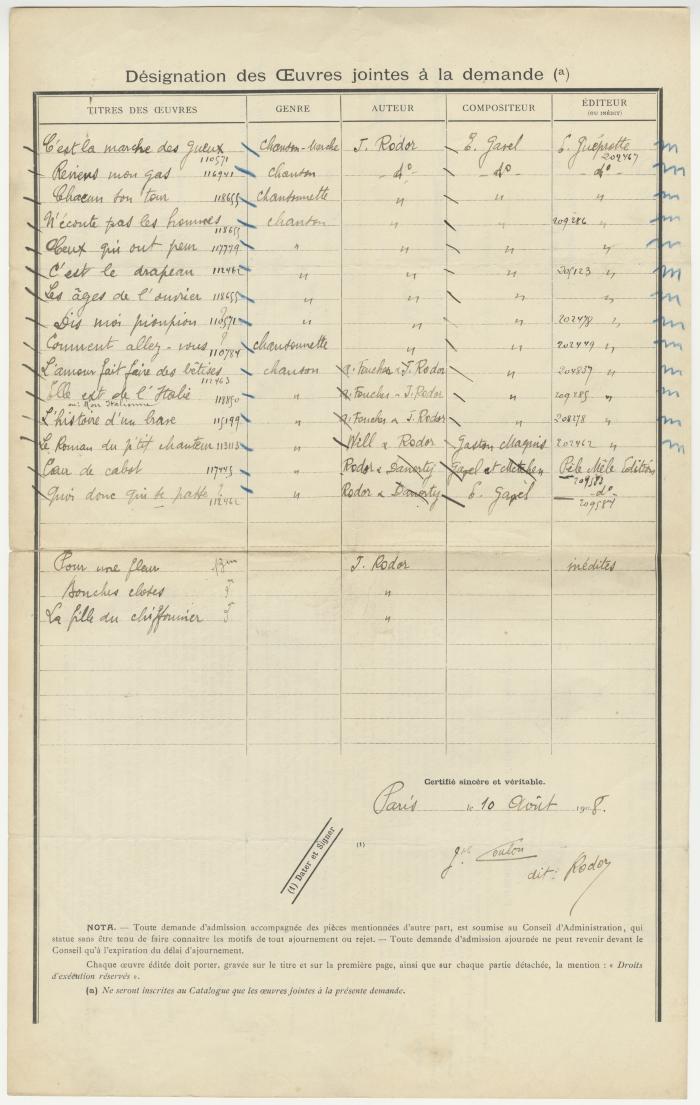 Désignation des Œuvres jointes à la demande (a)
TITRES DES ŒUVRES GENRE AUTEUR COMPOSITEUR ÉDITEUR
(OU INÉDIT)
C'est la marche des gueux 110571 chanson-marche J. Rodor E. Gavel E. Guéprotte 202467
Reviens mon gas 116941 chanson - d° - - d° - - d° -
Chacun son tour 118655 chansonnette " " "
N'écoute pas les hommes 118655 chanson " " 209286 "
Ceux qui ont peur 117749 " " " "
C'est le drapeau 112462 " " " 205123 "
Les âges de l'ouvrier 118655 " " " "
Dis moi pioupiou ? 110571 " " " 202478 "
Comment allez-vous ? 110784 chansonnette " " 202449 "
L'amour fait faire des bêtises 112463 chanson Foucher & J. Rodor " 204837 "
Elle est de l'Italie 118850 " Foucher & J. Rodor " 209285 "
ou: Mon Italienne
L'histoire d'un brave 115199 " Foucher & J. Rodor " 208278 "
Le Roman du p'tit chanteur 113113 " Will & Rodor Gaston Maquis 202462 "
Cœur de cabot 117445 " Rodor & Danerty Gavel et Metehen Pêle Mêle Edition 209583
Quoi donc qui se passe ? 112462 " Rodor & Danerty E. Gavel - d° - 209584
Pour une fleur J. Rodor inédites
Bouches closes "
La fille du chiffonnier "
Certifié sincère et véritable.
Paris le 10 Août 1908.
(1) Dater et Signer
(1)
Jph Coulon
dit: Rodor
NOTA. — Toute demande d'admission accompagnée des pièces mentionnées d'autre part, est soumise au Conseil d'Administration, qui
statue sans être tenu de faire connaître les motifs de tout ajournement ou rejet. — Toute demande d'admission ajournée ne peut revenir devant le
Conseil qu'à l'expiration du délai d'ajournement.
Chaque œuvre éditée doit porter, gravée sur le titre et sur la première page, ainsi que sur chaque partie détachée, la mention : « Droits
d'exécution réservés ».
(a) Ne seront inscrites au Catalogue que les œuvres jointes à la présente demande.